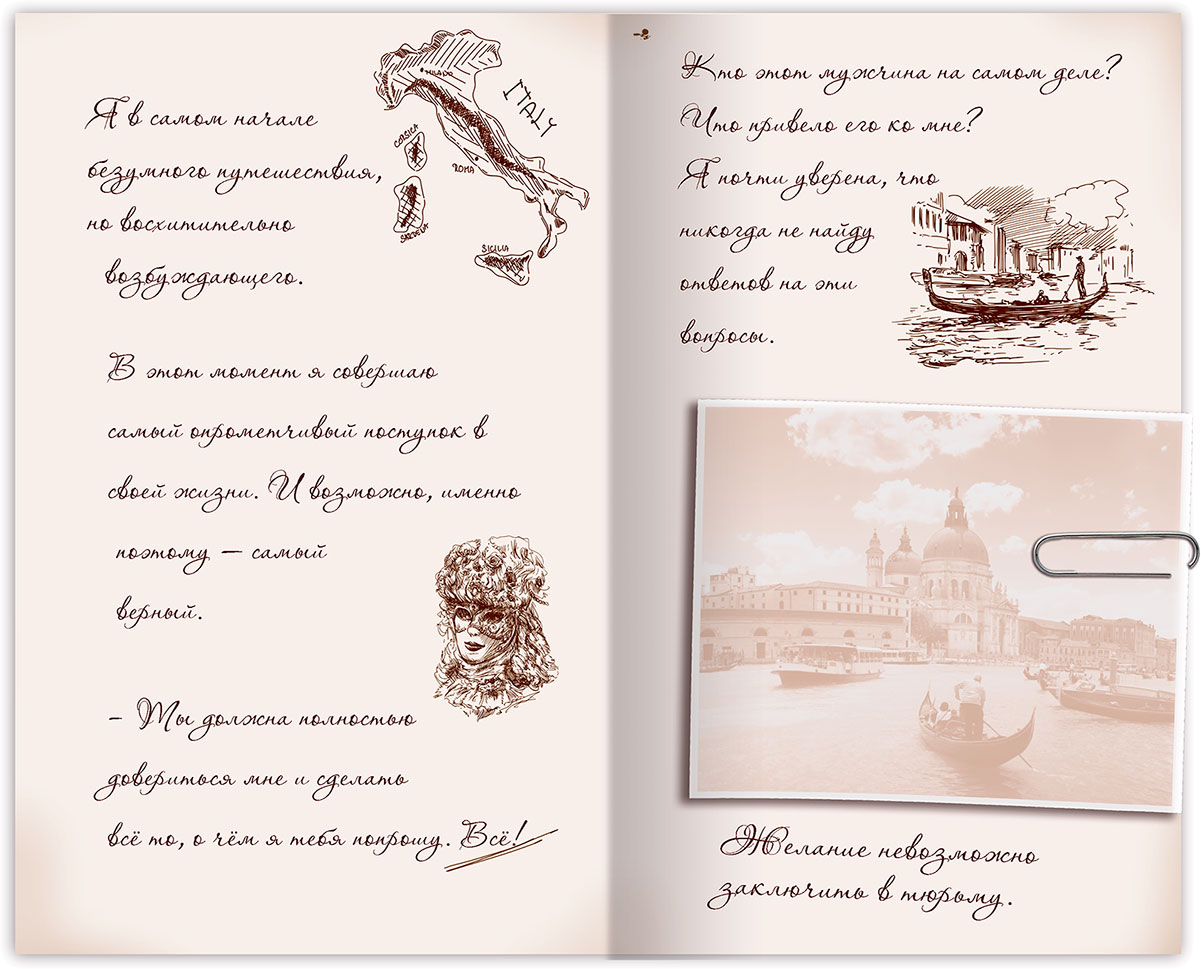 Я в самом начале
безумного путешествия,
но восхитительно
возбуждающего.
MILANO
ITALY
CORSICA
ROMA
SICILIA
В этот момент я совершаю
самый опрометчивый поступок в
своей жизни. И возможно, именно
поэтому — самый
верный.
– Ты должна полностью
довериться мне и сделать
всё то, о чём я тебя попрошу. Всё!
Кто этот мужчина на самом деле?
Что привело его ко мне?
Я почти уверена, что
никогда не найду
ответов на эти
вопросы.
Желание невозможно
заключить в тюрьму.